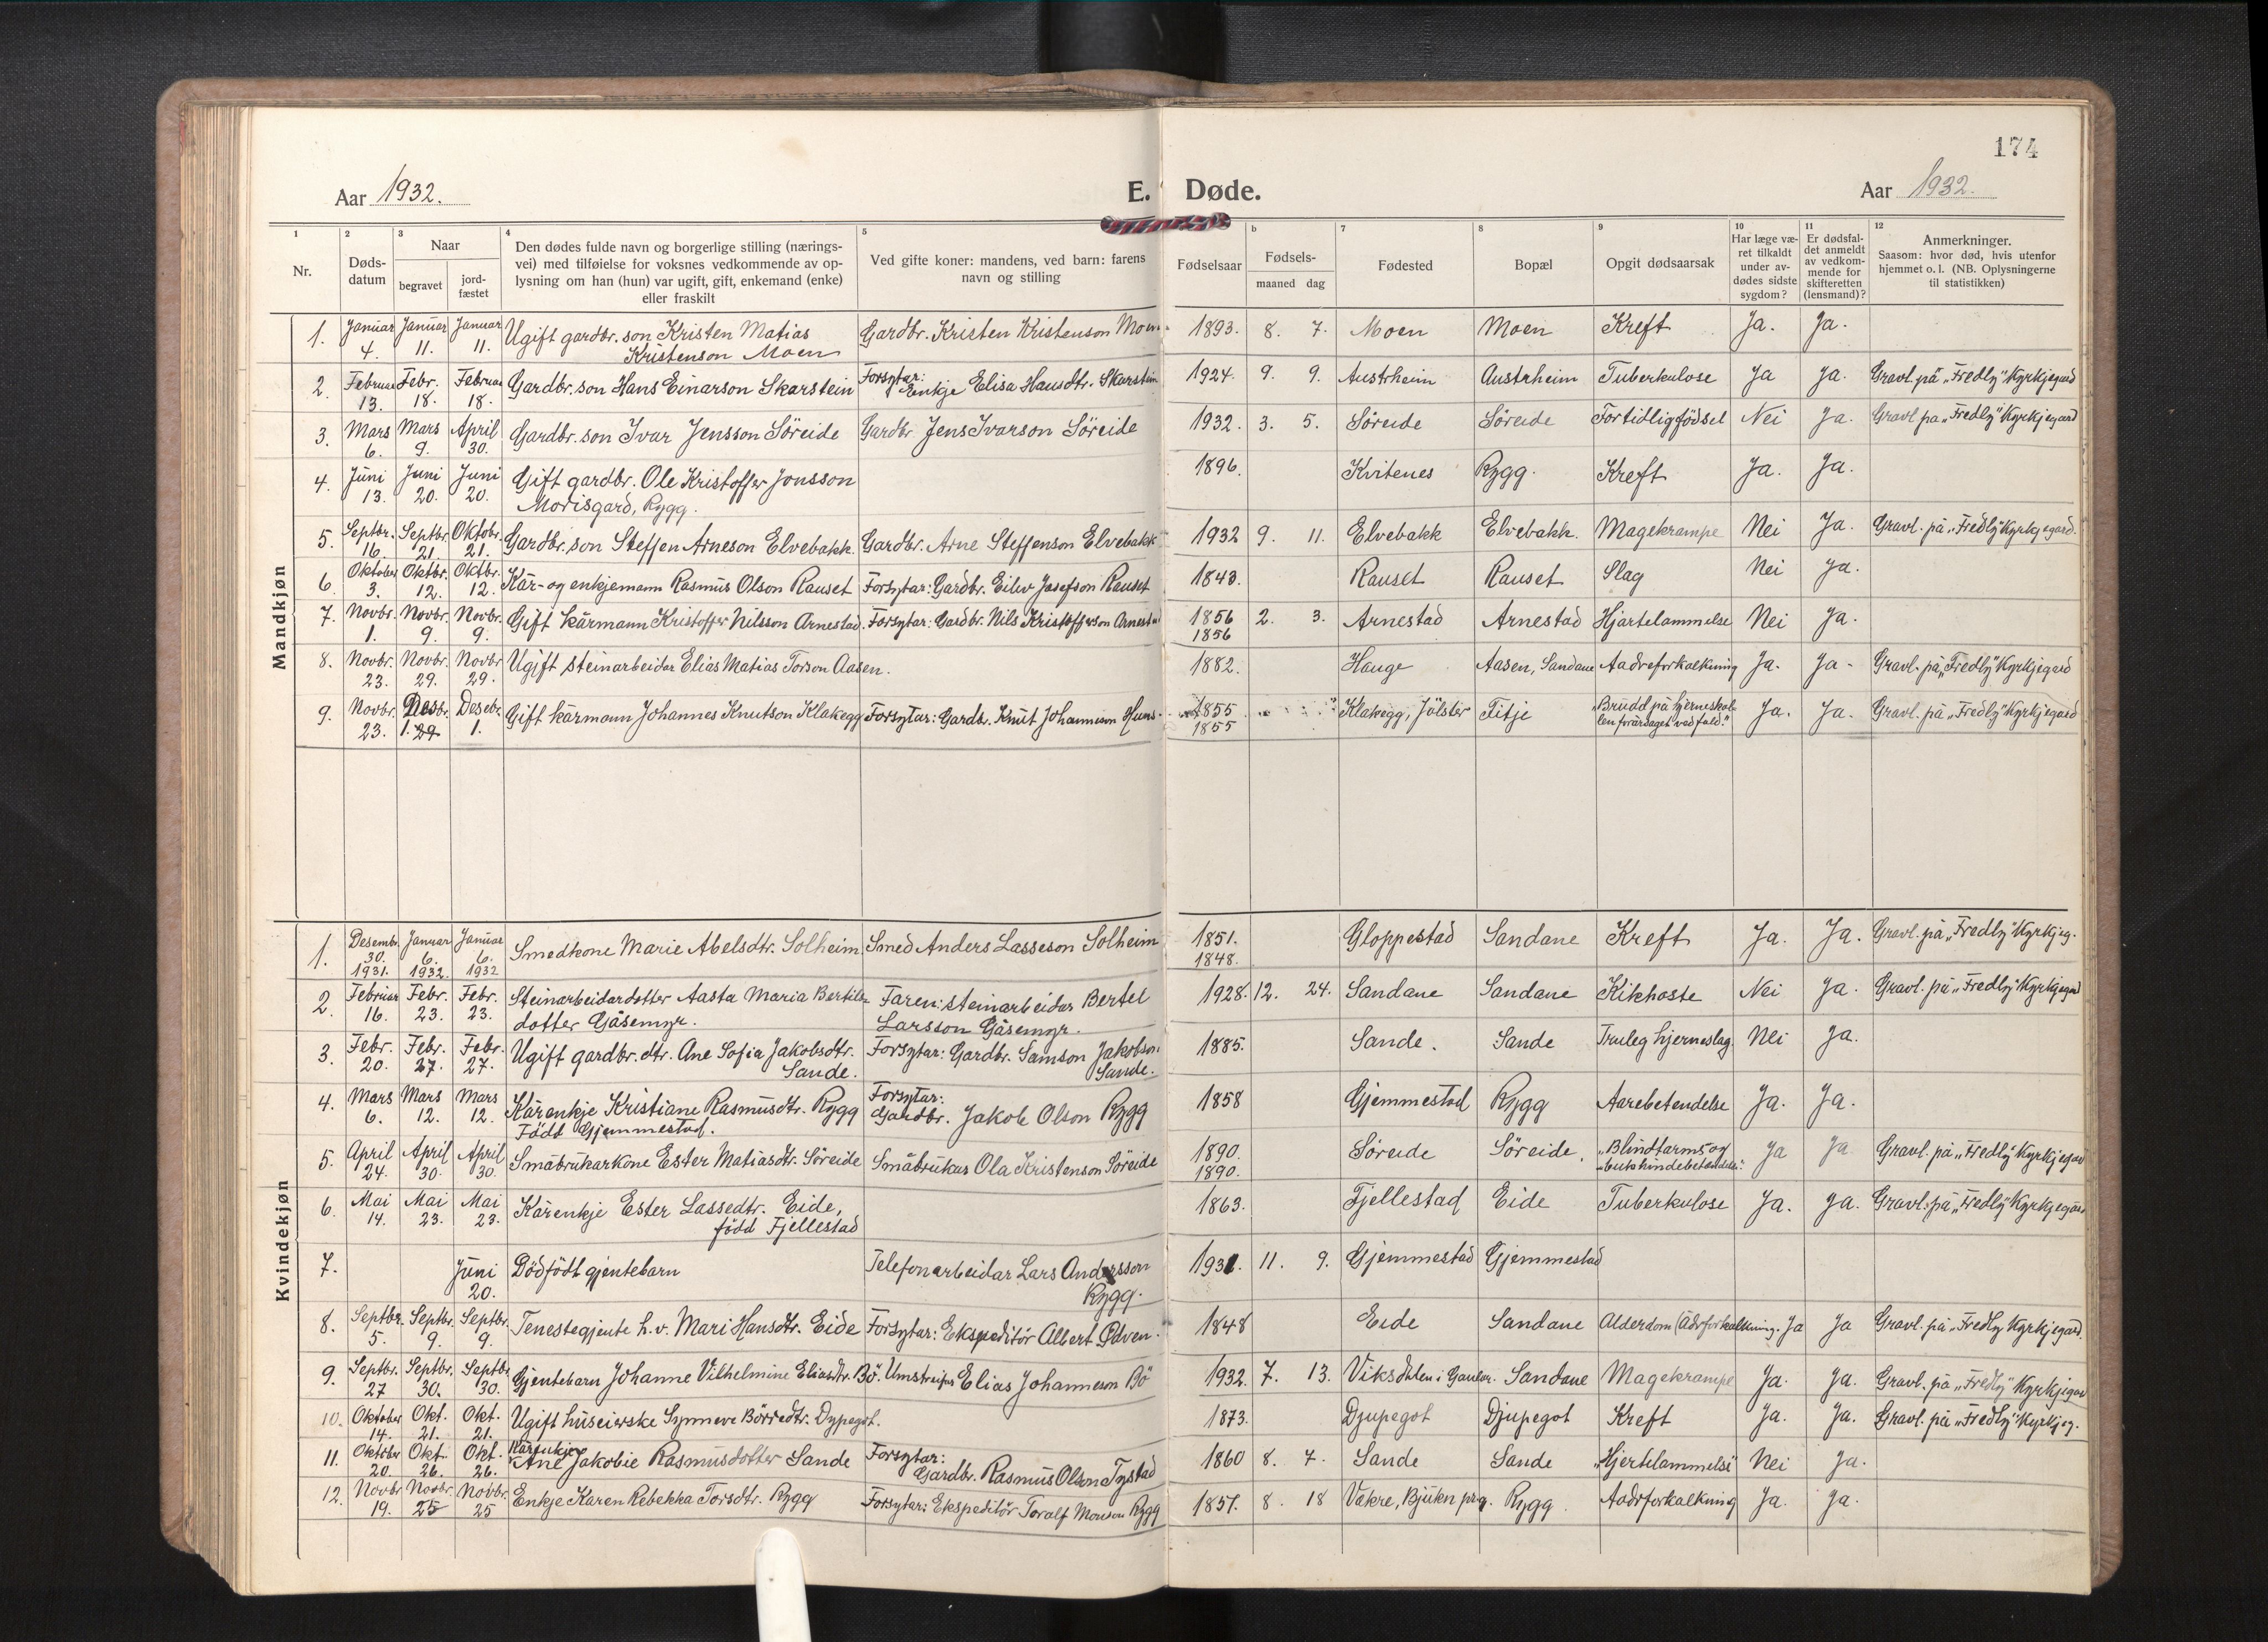 174
Aar 1932.
E. Døde.
Aar 1932.
1
Nr.
2
Døds-
datum
3
Naar
begravet
jord-
fæstet
4
Den dødes fulde navn og borgerlige stilling (nærings-
vei) med tilføielse for voksnes vedkommende av op-
lysning om han (hun) var ugift, gift, enkemand (enke)
eller fraskilt
5
Ved gifte koner: mandens, ved barn: farens
navn og stilling
Fødselsaar
b
Fødsels-
maaned dag
7
Fødested
8
Bopæl
9
Opgit dødsaarsak
10
Har læge væ-
ret tilkaldt
under av-
dødes sidste
sygdom?
11
Er dødsfal-
det anmeldt
av vedkom-
mende for
skifteretten
(lensmand)?
12
Anmerkninger.
Saasom: hvor død, hvis utenfor
hjemmet o. l. (NB. Oplysningerne
til statistikken)
Mandkjøn
1. Januar 4. Januar 11. Januar 11. Ugift gardbr. son Kristen Matias
Kristenson Moen
Gardbr. Kristen Kristenson Moen 1893. 8. 7. Moen Moen Kreft Ja. Ja.
2. Februar 13. Febr. 18. Februar 18. Gardbr. son Hans Einarson Skarstein
Forsytar:
Enkje Elisa Hansdtr. Skarstein 1924. 9. 9. Austrheim Austrheim Tuberkulose Ja Ja. Gravl. på „Fredly" Kyrkjegard
3. Mars 6. Mars 9. April 30. Gardbr. son Ivar Jensson Söreide Gardbr. Jens Ivarson Söreide 1932. 3. 5. Söreide Söreide For tidlig födsel Nei Ja. Gravl på „Fredly" Kyrkjegard
4. Juni 13. Juni 20. Juni 20. Gift gardbr. Ole Kristoffer Jonsson
Morisgard, Rygg.
1896. Kvitenes Rygg. Kreft Ja. Ja.
5. Septbr. 16. Septbr. 21. Oktobr. 21. Gardbr. son Steffen Arneson Elvebakk. Gardbr. Arne Steffenson Elvebakk 1932 9. 11. Elvebakk Elvebakk. Magekrampe Nei Ja. Gravl. på „Fredly" Kyrkjegard.
6. Oktober 3. Oktbr. 12. Oktbr. 12. Kår- og enkjemann Rasmus Olson Rauset Forsytar: Gardbr. Eilev Josefson Rauset 1843. Rauset Rauset Slag Nei Ja.
7. Novbr. 1. Novbr. 9. Novbr. 9. Gift kårmann Kristoffer Nilsson Arnestad. Forsytar: Gardbr. Nils Kristofferson Arnestad 1856 2. 3. Arnestad Arnestad Hjartelammelse Nei Ja.
1856
8. Novbr. 23. Novbr. 29. Novbr 29. Ugift steinarbeidar Elias Matias Torson Aasen. 1882. Hauge Aasen, Sandane Aadreforkalkning Ja. Ja - Gravl. på „Fredly" Kyrkjegard
9. Novbr. 23. Desbr. 1. 29 Desebr. 1. Gift kårmann Johannes Knutson Klakegg Forsytar: Gardbr. Knut Johanneson 1855 Klakegg, Jölster Fitje „Brudd på hjerneskal-
len forårsaget ved fald." Ja. Ja. Gravl. på „Fredly" Kyrkjegard
1855
Kvindekjøn
1. Desembr. 30. 1931. Januar 6. 1932. Januar 6. 1932 Smedkone Marie Abelsdtr. Solheim. Smed Anders Lasseson Solheim 1851. Gloppestad Sandane Kreft Ja. Ja. Gravl. på „Fredly" Kyrkjeg.
1848.
2. Februar 16. Febr. 23. Febr. 23. Steinarbeidardotter Aasta Maria Bertils-
dotter Gåsemyr.
Faren: steinarbeidar Bertel
Larsson Gåsemyr.
1928. 12. 24. Sandane Sandane Kikhoste Nei Ja. Gravl. på „Fredly" Kyrkjegard
3. Febr. 20. Febr. 27. Febr. 27. Ugift gardbr. dtr. Ane Sofia Jakobsdtr.
Sande.
Forsytar: Gardbr. Samson Jakobson
Sande.
1885. Sande. Sande Truleg hjerneslag. Nei Ja.
4. Mars 6. Mars 12. Mars 12. Kårenkje Kristiane Rasmusdtr. Rygg
Född Gjemmestad.
Forsytar:
Gardbr. Jakob Olson Rygg
1858 Gjemmestad Rygg Aarebetendelse Ja. Ja.
5. April 24. April 30. April 30. Småbrukarkone Ester Matiasdtr. Söreide Småbrukar Ola Kristenson Söreide 1890. Söreide Söreide. „Blindtarms og
bukhindebetendelse." Ja Ja Gravl. på „Fredly" Kyrkjegard
1890.
6. Mai 14. Mai 23. Mai 23. Kårenkje Ester Lassedtr. Eide,
född Fjellestad
1863. Fjellestad Eide Tuberkulose Ja. Ja. Gravl. på „Fredly" Kyrkjegard
7. Juni 20. Dödfödt gjentebarn Telefonarbeidar Lars Andersson
Rygg.
1931. 11. 9. Gjemmestad Gjemmestad
8. Septbr. 5. Septbr. 9. Septbr. 9. Tenestegjente h.v. Mari Hansdtr. Eide Forsytar: Ekspeditör Albert Odven. 1848 Eide Sandane Alderdom (Ådrforkalkning. Ja Ja Gravl. på „Fredly Kyrkjegard.
9. Septbr. 27 Septbr. 30. Septbr. 30. Gjentebarn Johanne Vilhelmine Eliasdtr. Bö. Umstreifer Elias Johanneson Bö 1932. 7. 13. Viksdalen i Gaular. Sandane Magekrampe Ja. Ja. Gravl. på „Fredly" Kyrkjegard
10. Oktober 14. Okt. 21. Okt. 21. Ugift huseierske Synneve Börredtr. Dypegot. 1873. Djupegot Djupegot Kreft Ja. Ja. Gravl. på „Fredly" Kyrkjeg.
11. Oktober 20. Okt. 26. Okt. 26. Kårenkje
Ane Jakobie Rasmusdotter Sande
Forsytar:
Gardbr. Rasmus Olson Tystad
1860 8. 7. Sande Sande „Hjertelammelse" Nei Ja.
12. Novbr 19. Novbr. 25 Novbr. 25 Enkje Karen Rebekka Torsdtr. Rygg Forsytar: Ekspeditör Toralf Monson Rygg 1851. 8. 18 Vakre, Bjukn prg. Rygg. Aadrforkalkning Ja. Ja.